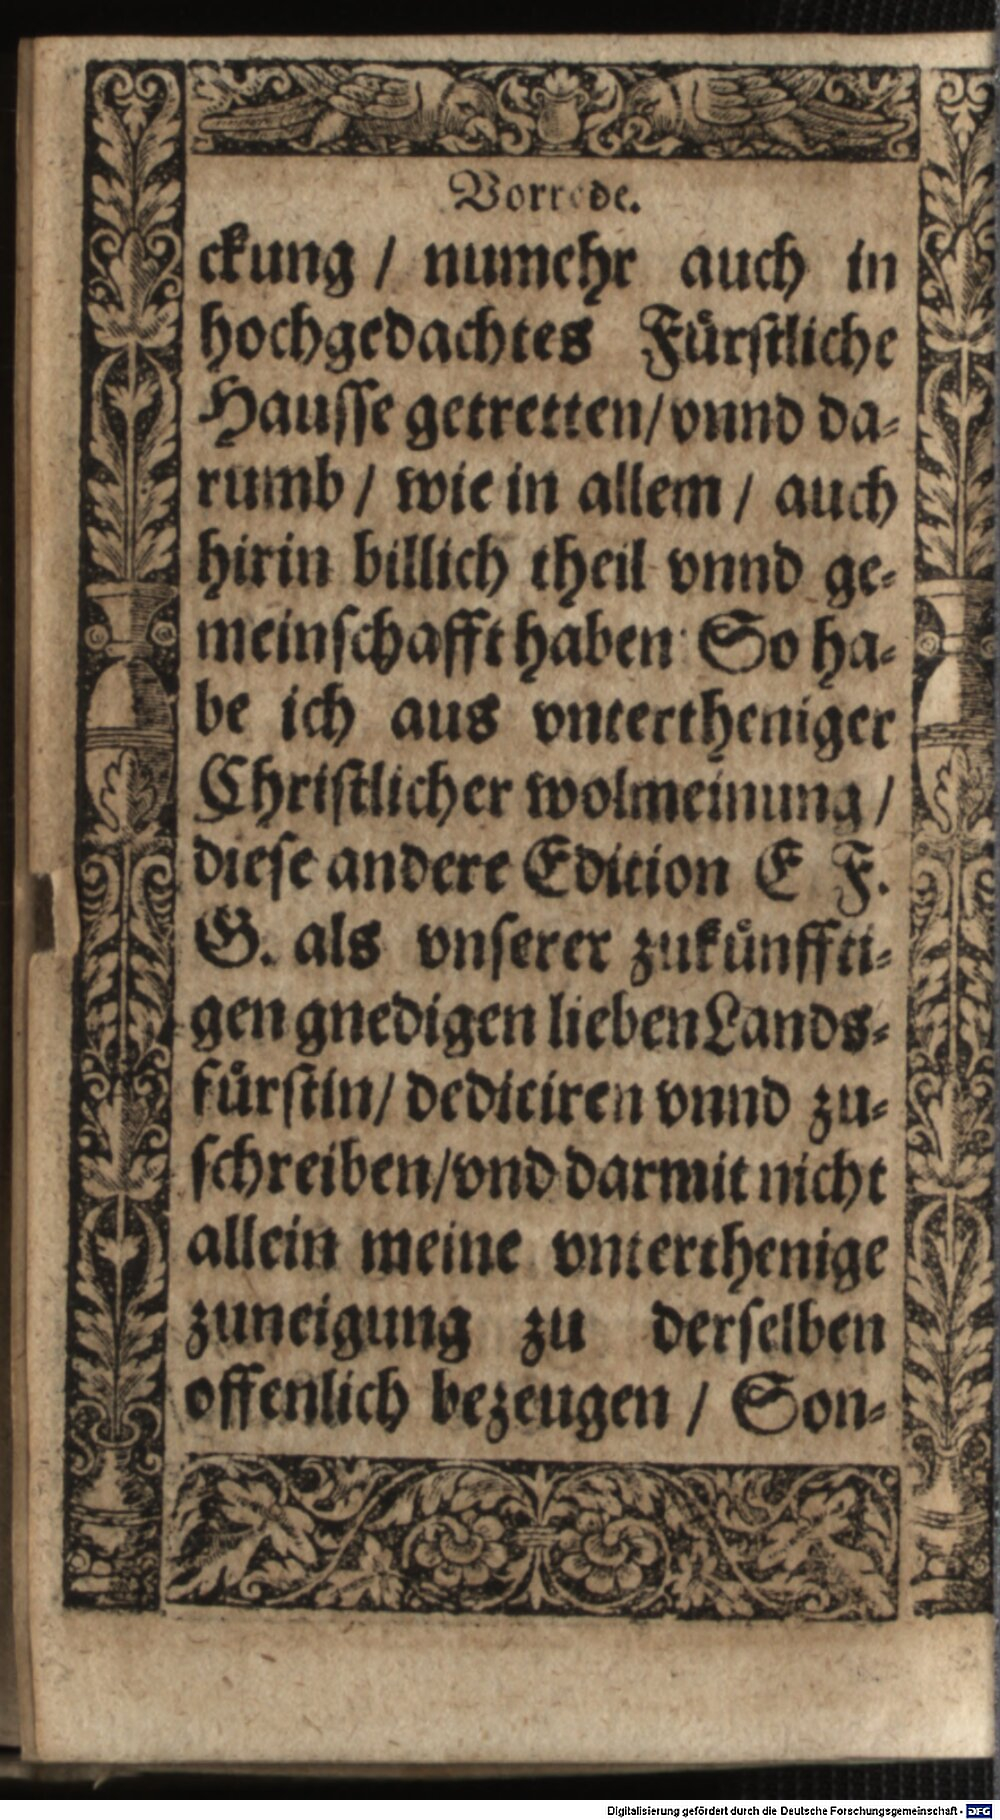 Vorrede.
ckung / numehr auch in
hochgedachtes Fürstliche
Hausse getretten/ vnnd da-
rumb / wie in allem / auch
hirin billich theil vnnd ge-
meinschafft haben: So ha-
be ich aus vntertheniger
Christlicher wolmeinung /
diese andere Edition E F.
G. als vnserer zukünffti-
gen gnedigen lieben Lands-
fürstin/ dediciren vnnd zu-
schreiben/ vnd darmit nicht
allein meine vnterthenige
zuneigung zu derselben
offenlich bezeugen / Son-
Digitalisierung gefördert durch die Deutsche Forschungsgemeinschaft - DFG